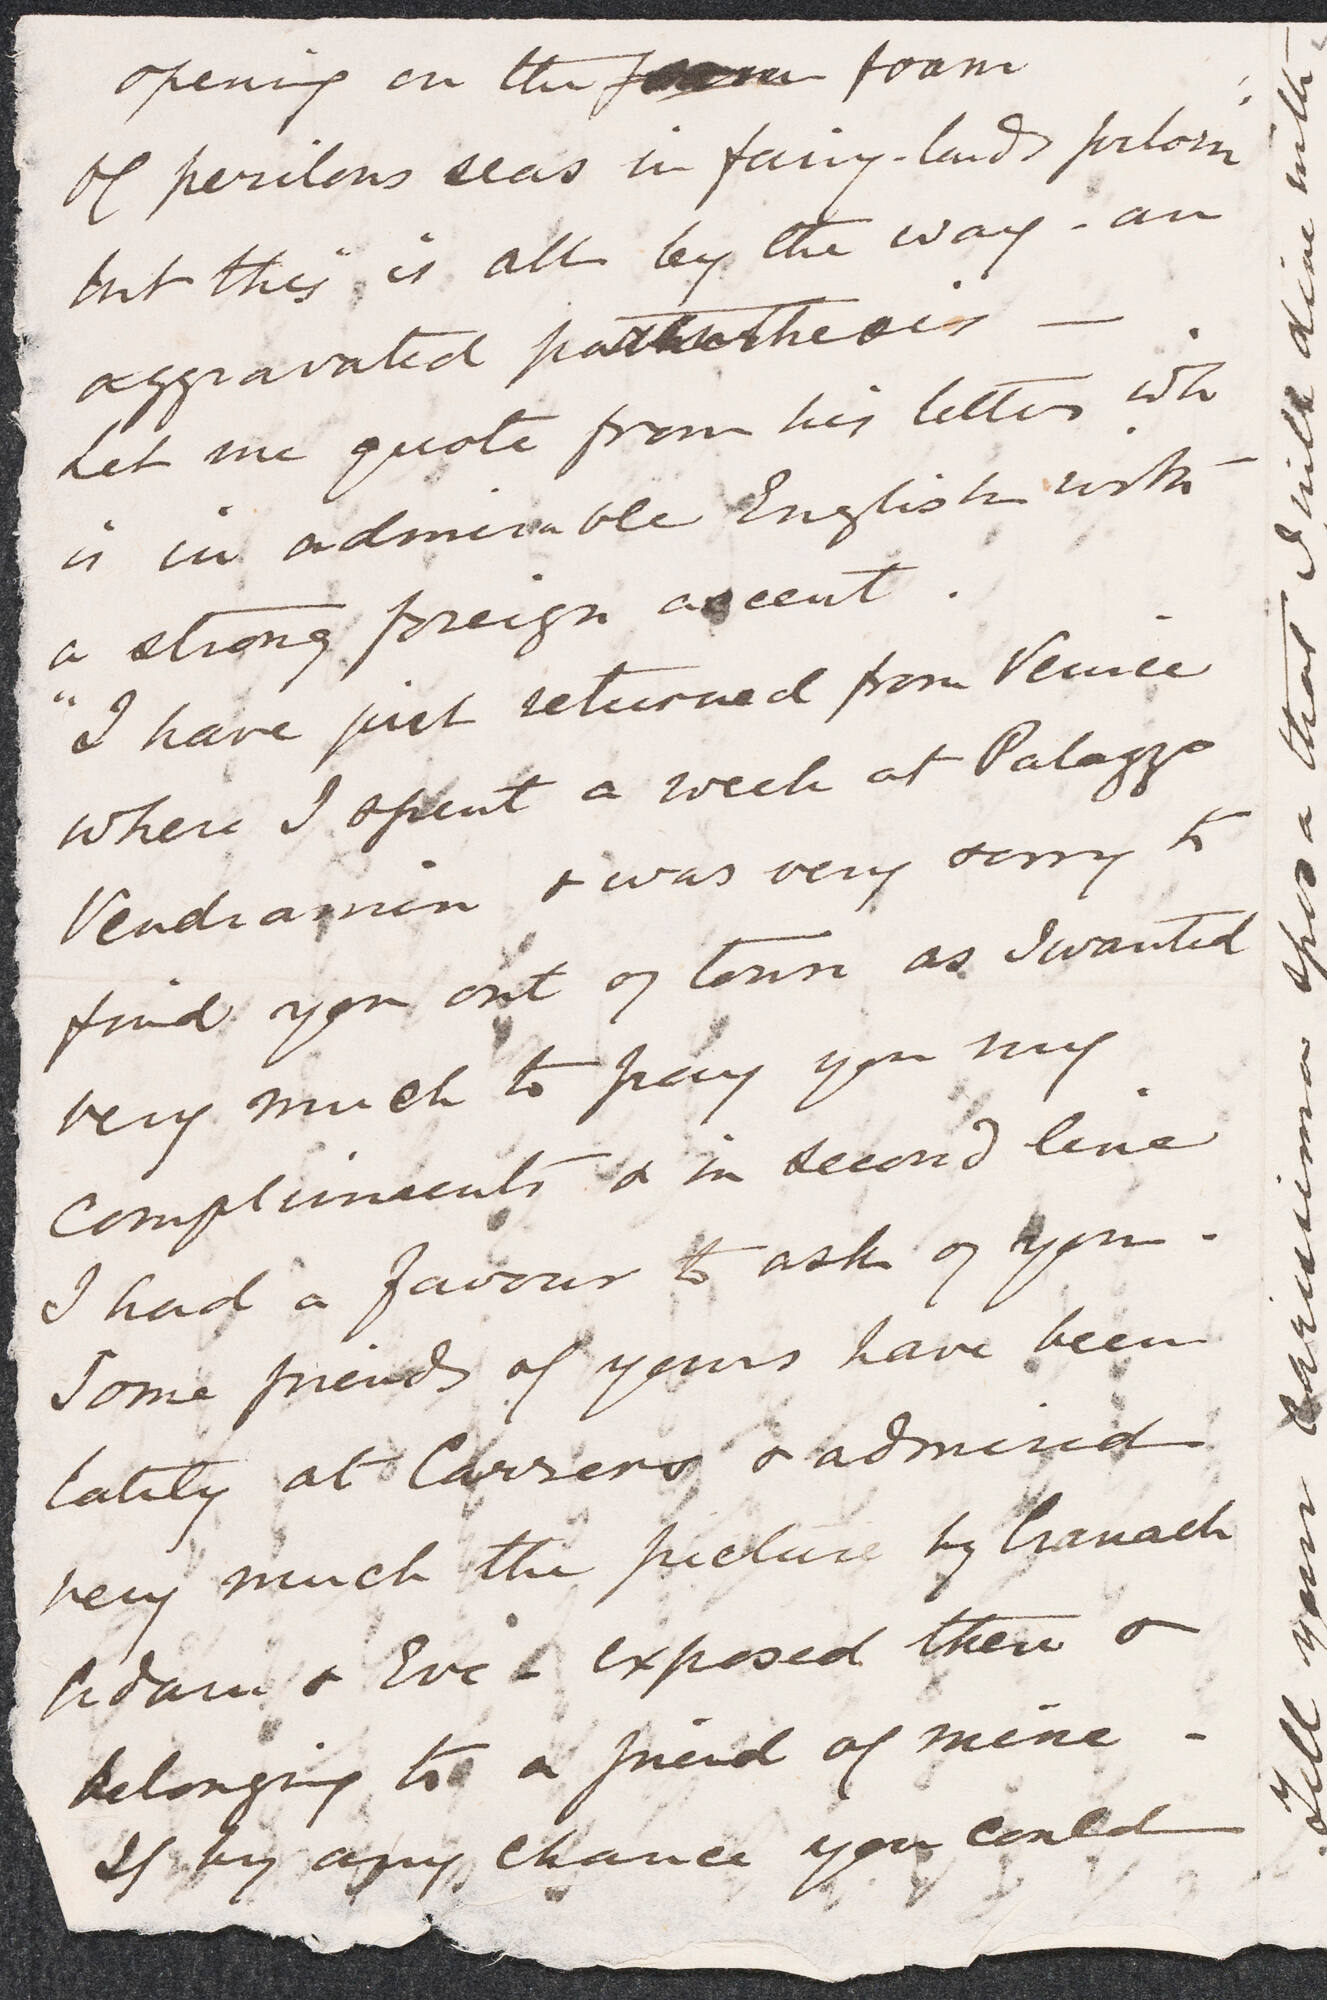 opening on the foam
of perilous seas in fairy-lands forlorn"
but this is all by the way - an
aggravated parenthesis —
Let me quote from his letter wh
is in admirable English with
a strong foreign accent.
"I have just returned from Venice
where I spent a week at Palazzo
Vendramin & was very sorry to
find you out of town as I wanted
very much to pay you my
compliments & in second line
I had a favour to ask of you -
Some friends of yours have been
lately at Carrers & admired
very much the picture by Cranach
Adam & Eve - exposed there &
belonging to a friend of mine -
If by any chance you could
Tell your Carissima Sposa that I will dine with